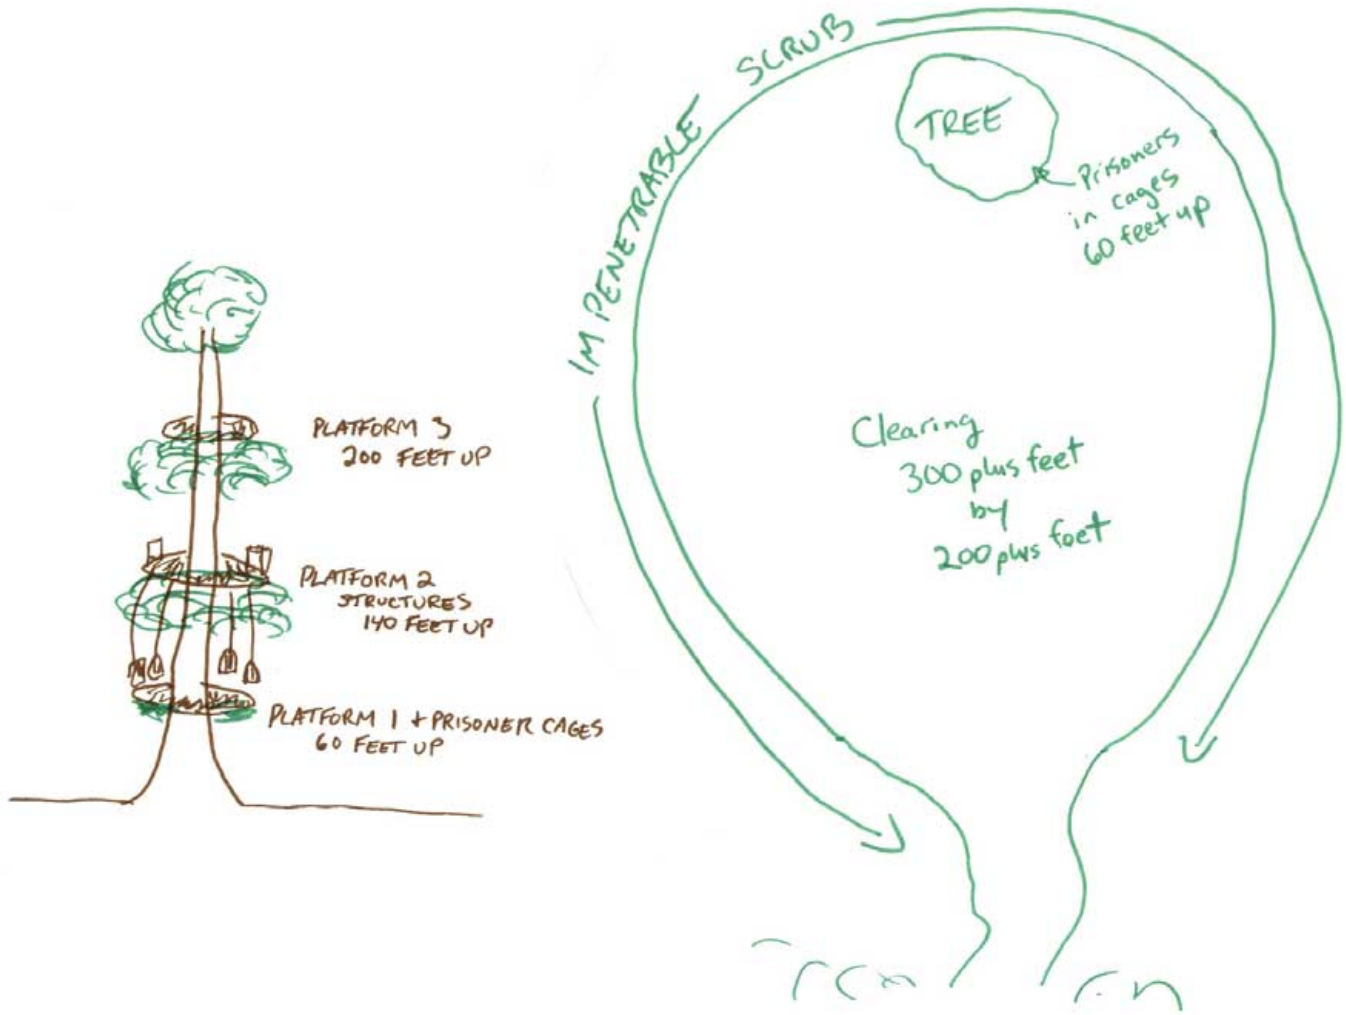 PLATFORM 3
200 FEET UP
PLATFORM 2
STRUCTURES
140 FEET UP
PLATFORM 1 + PRISONER CAGES
60 FEET UP
IMPENETRABLE SCRUB
TREE
Prisoners
in cages
60 feet up
Clearing
300 plus feet
by
200 plus feet